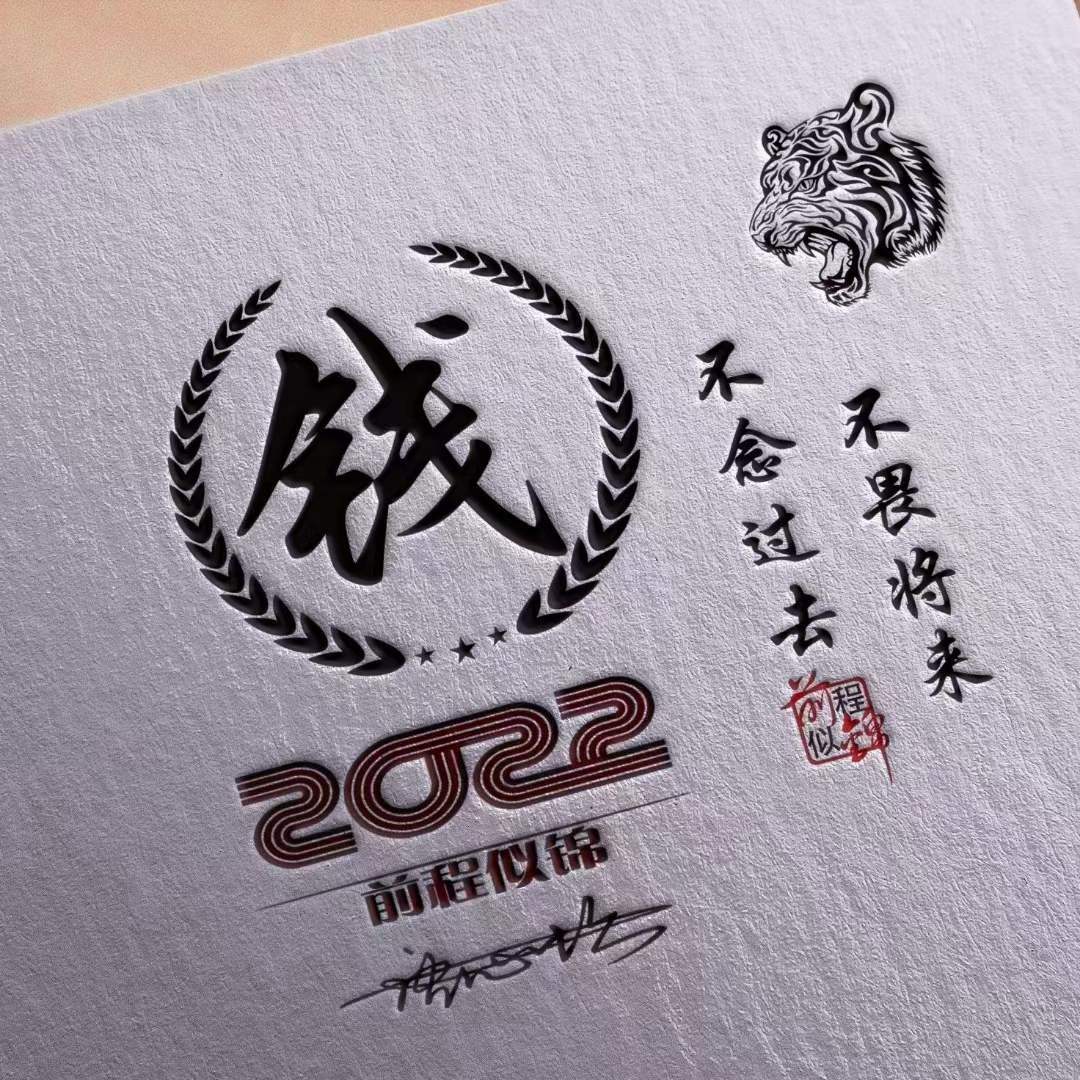 钱
2022
前程似锦
不念过去
不畏将来
前程
似锦